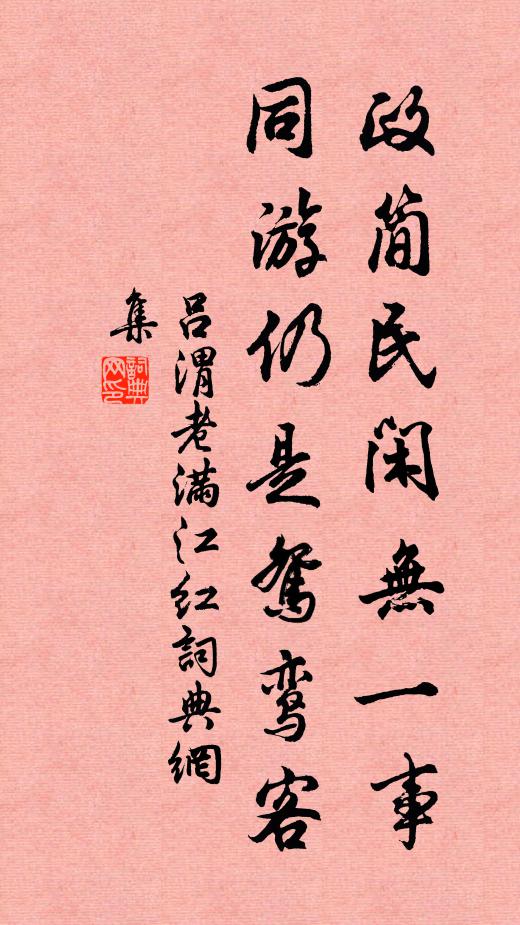 政简民闲無一事
同游仍是鸳鸾客
吕渭老满江红詞典網
集
詞典
网印